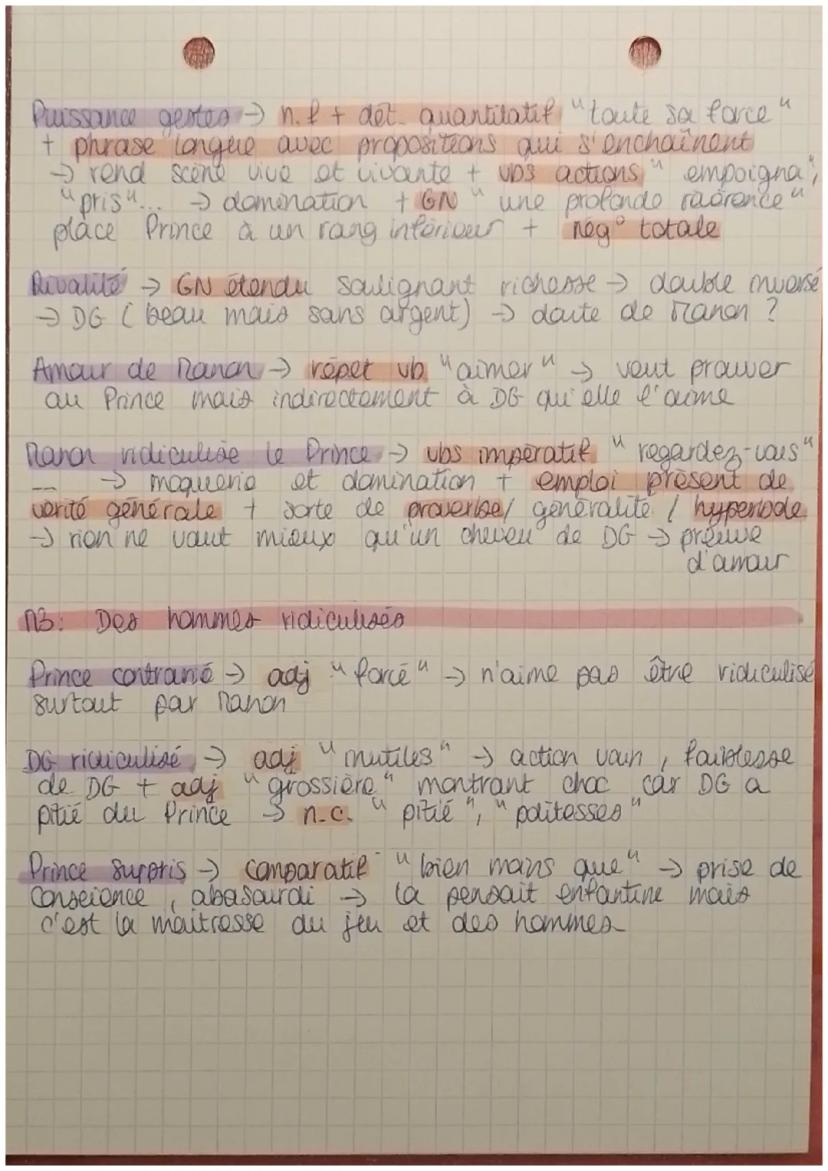 Puissance gestes → n.f + dét. quantitatif "toute sa force"
+ phrase longue avec propositions qui s'enchaînent
→ rend scène vive et vivante + vbs actions "empoigna",
"pris"... → domination + GN "une profonde révérence"
place Prince à un rang inférieur + nég° totale
Rivalité → GN étendu soulignant richesse → double inversé
→ DG (beau mais sans argent) → doute de Manon ?
Amour de Manon → répet vb "aimer" → veut prouver
au Prince mais indirectement à DG qu'elle l'aime
Manon ridiculise le Prince → vbs impératif "regardez-vous"
... → moquerie et domination + emploi présent de
vérité générale + sorte de proverbe/ généralité / hyperbole
→ rien ne vaut mieux qu'un cheveu de DG → preuve
d'amour
M3: Des hommes ridiculisés
Prince contrarié → adj "forcé" → n'aime pas être ridiculisé
surtout par Manon
DG ridiculisé → adj "inutiles" → action vain, faiblesse
de DG + adj "grossière" montrant choc car DG a
pitié du Prince → n.c. "pitié", "politesses"
Prince surpris → comparatif "bien moins que" → prise de
conscience, abasourdi → la pensait enfantine mais
c'est la maitresse du jeu et des hommes